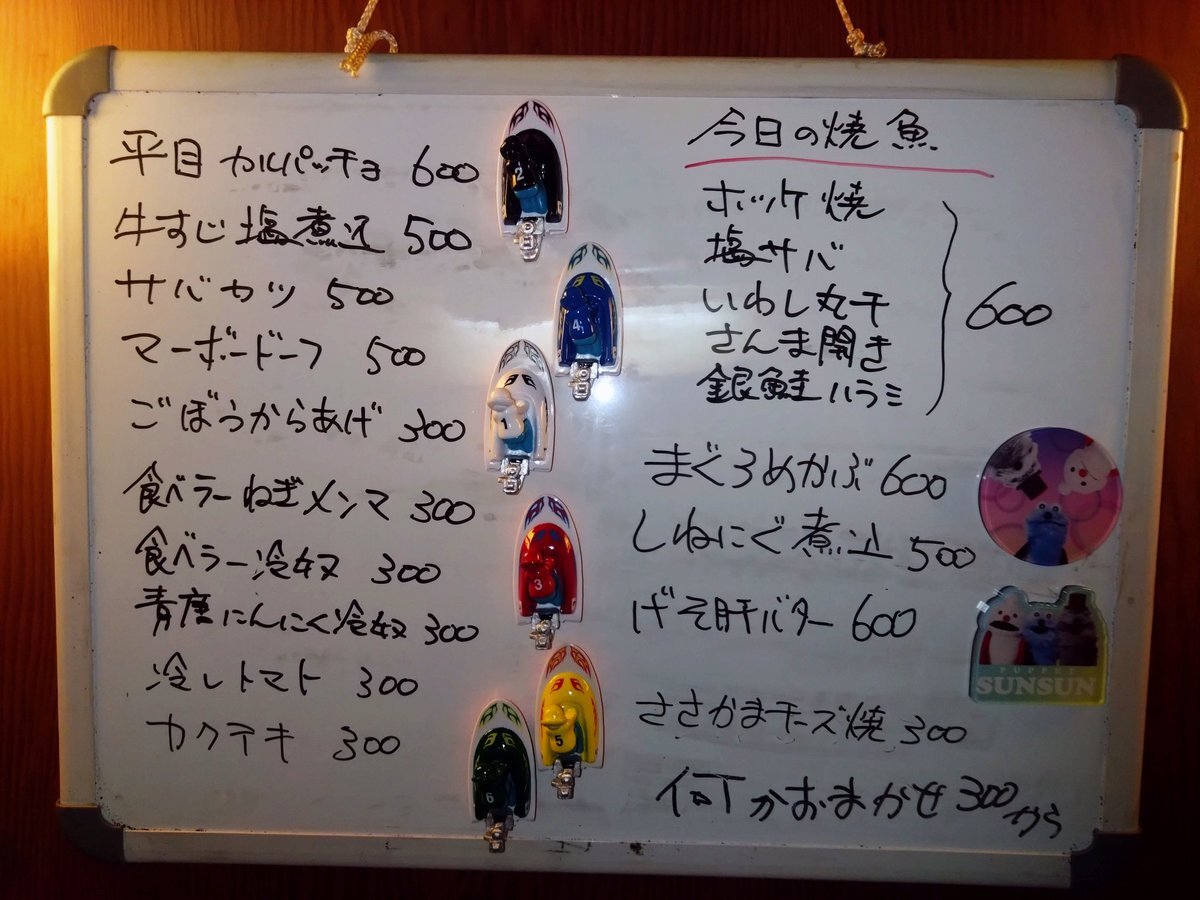 平目カルパッチョ 600
牛すじ塩煮込 500
サバカツ 500
マーボードーフ 500
ごぼうからあげ 300
食べラーねぎメンマ 300
食べラー冷奴 300
青唐にんにく冷奴 300
冷しトマト 300
カクテキ 300
今日の焼魚
ホッケ焼
塩サバ
いわし丸干
さんま開き
銀鮭ハラミ
600
まぐろめかぶ 600
しねにく煮込 500
げそ肝バター 600
ささかまチーズ焼 300
何かおまかせ 300から
2
4
1
3
5
6
SUNSUN